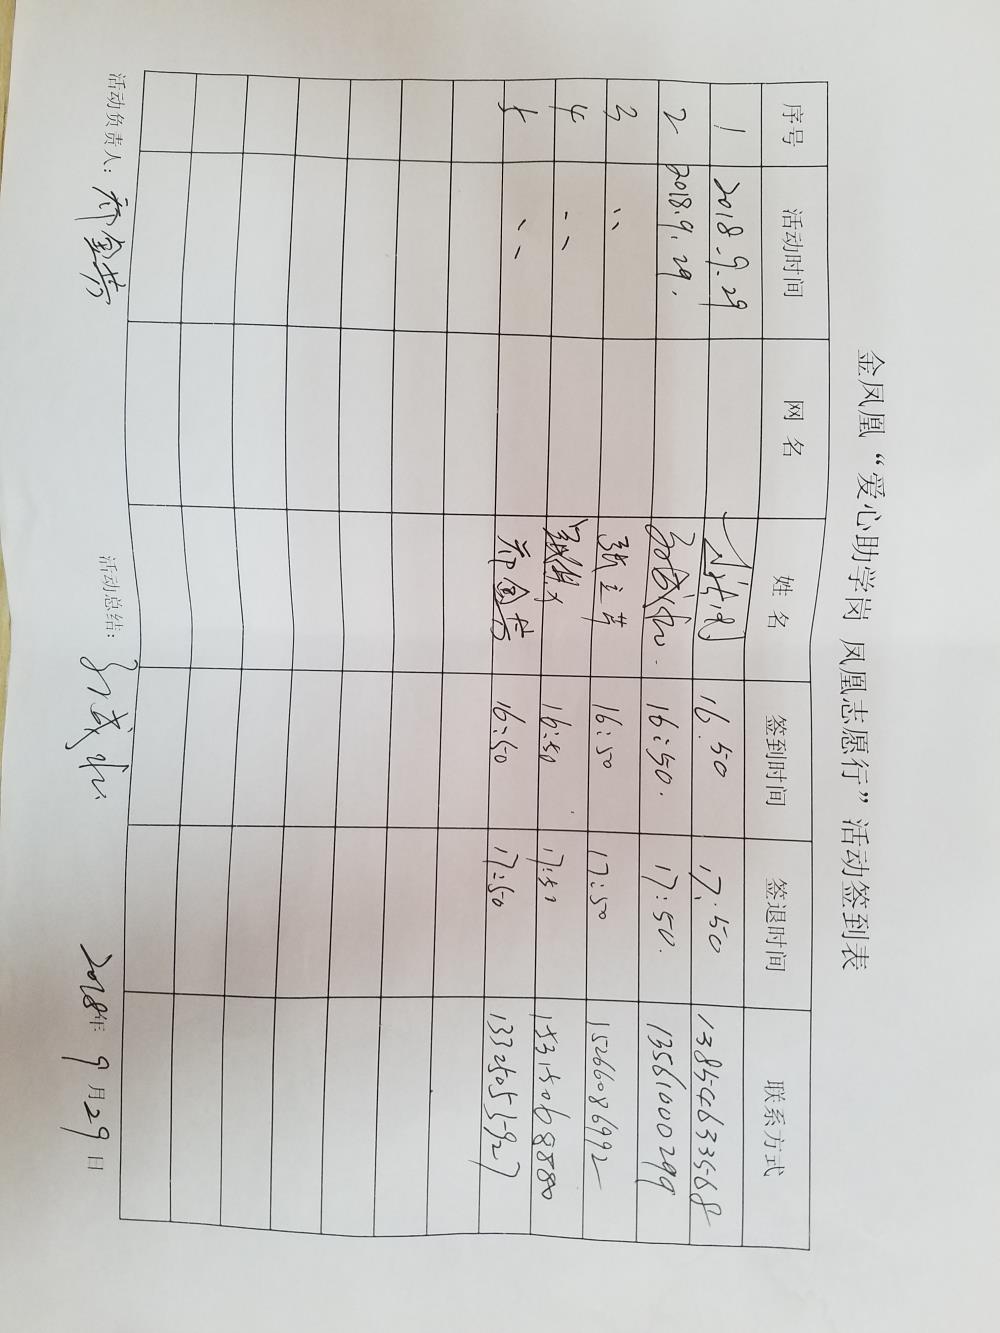 金凤凰“爱心助学岗 凤凰志愿行”活动签到表
序号 活动时间 网 名 姓 名 签到时间 签退时间 联系方式
1 2018.9.29 16:50 17:50 13854633568
2 2018.9.29. 16:50. 17:50. 13561000299
3 〃 16:50 17:50 15266086992
4 〃 16:50 17:50 15315068880
5 〃 16:50 17:50 13325053927
活动负责人: 活动总结: 2018年 9月29日